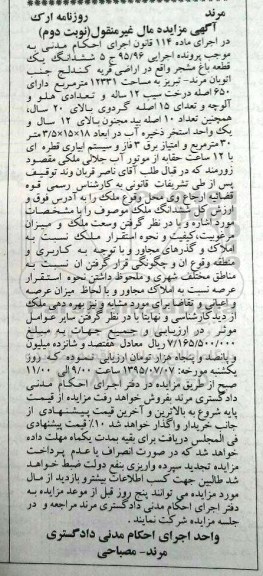 مرند
روزنامه ارک
آگهی مزایده مال غیرمنقول(نوبت دوم)
در اجرای ماده ۱۱۴ قانون اجرای احکام مدنی به
موجب پرونده اجرایی ۹۵/۹۶ ح ۵ ششدانگ یک
قطعه باغ مشجر واقع در اراضی قریه کندلج جنب
اتوبان مرند- تبریز به مساحت ۱۲۳۳۱ مترمربع دارای
۶۵۰ اصله درخت سیب ۱۲ ساله و تعدادی هلو و
آلوچه و تعدای ۱۵ اصله گردوی بالای ۲۰ سال،
همچنین تعداد ۱۰ اصله بید مجنون بالای ۱۲ سال و
یک واحد استخر ذخیره آب در ابعاد ۱۸×۱۵×۳/۵ متر
۳۰ مترمربع و امتیاز برق ۳ فاز و سیستم آبیاری قطره ای
با ۱۲ ساعت حقابه از موتور آب جلالی ملکی مقصود
زورمند که در قبال طلب آقای ناصر قربان وند توقیف
پس از طی تشریفات قانونی به کارشناس رسمی قوه
قضائیه ارجاع وی محل وقوع ملک را به آدرس فوق و
ارزش کل ششدانگ ملک موصوف را با مشخصات
مورد اشاره و با در نظر گرفتن وسعت ملک و میزان
مرغوبیت،کیفیت و نحوه استقرار ملک نسبت به
املاک و گذرهای مجاور و با توجه به کاربری و
منطقه وقوع آن و چگونگی قرار گرفتن آن نسبت به
مناطق مختلف شهری و ملحوظ داشتن نحوه استقرار
عرصه نسبت به املاک مجاور و با لحاظ میزان عرصه
و اعیانی و تقاضا برای مورد مشابه و نیز بهره دهی ملک
از دید کارشناسی و نهایتا با در نظر گرفتن سایر عوامل
موثر در ارزیابی و جمیع جهات به مبلغ
۷/۱۶۵/۵۰۰/۰۰۰ ریال معادل هفتصد و شانزده میلیون
و پانصد و پنجاه هزار تومان ارزیابی نموده که روز
یکشنبه مورخه: ۱۳۹۵/۰۷/۰۷ ساعت ۰۹/۰۰ الی ۱۱/۰۰
صبح از طریق مزایده در دفتر اجرای احکام مدنی
دادگستری مرند بفروش خواهد رفت مزایده از قیمت
پایه شروع به بالاترین و آخرین قیمت پیشنهادی از
جانب خریدار واگذار خواهد شد ۱۰٪ قیمت پیشنهادی
فی المجلس دریافت برای بقیه بمدت یکماه مهلت داده
خواهد شد که در صورت انصراف یا عدم پرداخت
مزایده تجدید سپرده واریزی بنفع دولت ضبط خواهد
شد طالبین جهت کسب اطلاعات بیشتر و بازدید از مال
مورد مزایده می توانند پنج روز قبل از موعد مزایده به
دفتر اجرای احکام مدنی دادگستری مرند مراجعه و در
جلسه مزایده شرکت نمایند .
واحد اجرای احکام مدنی دادگستری
مرند- مصباحی